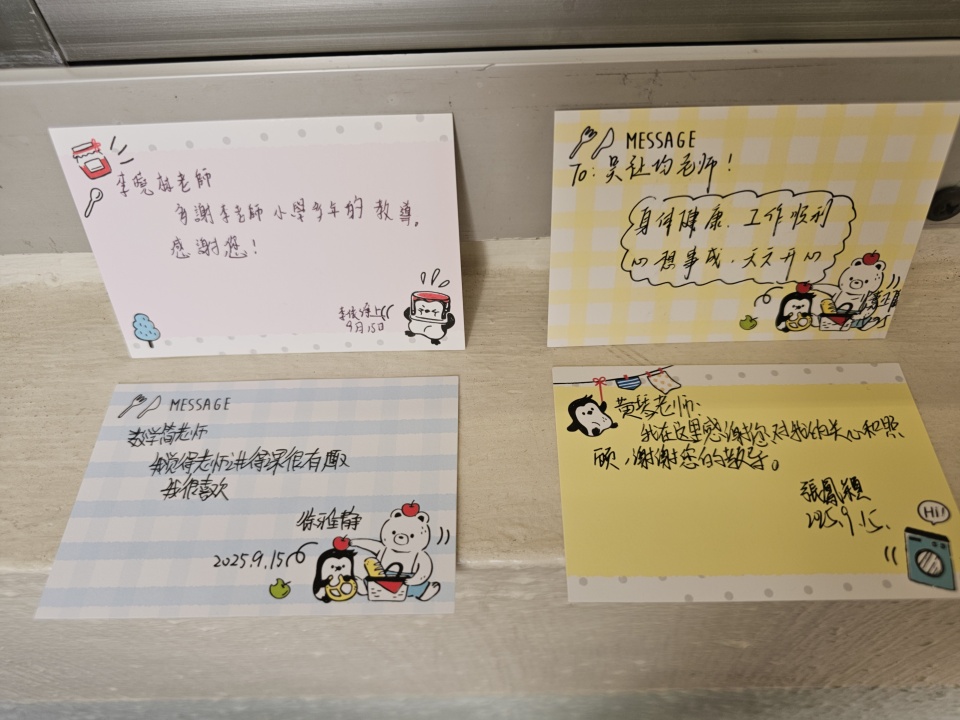 李曉林老師
有謝李老師小學多年的教導,
感謝您!
上
9月15日
MESSAGE
To: 吴社均老师!
身体健康. 工作顺利
心想事成. 天天开心
MESSAGE
数学简老师
我觉得老师讲得课很有趣
我很喜欢
徐雅静
2025.9.15
黄琴老师:
我在这里感谢您对我的关心和照
顾,谢谢您的教导。
張鳳穎
2025.9.15.
Hi!